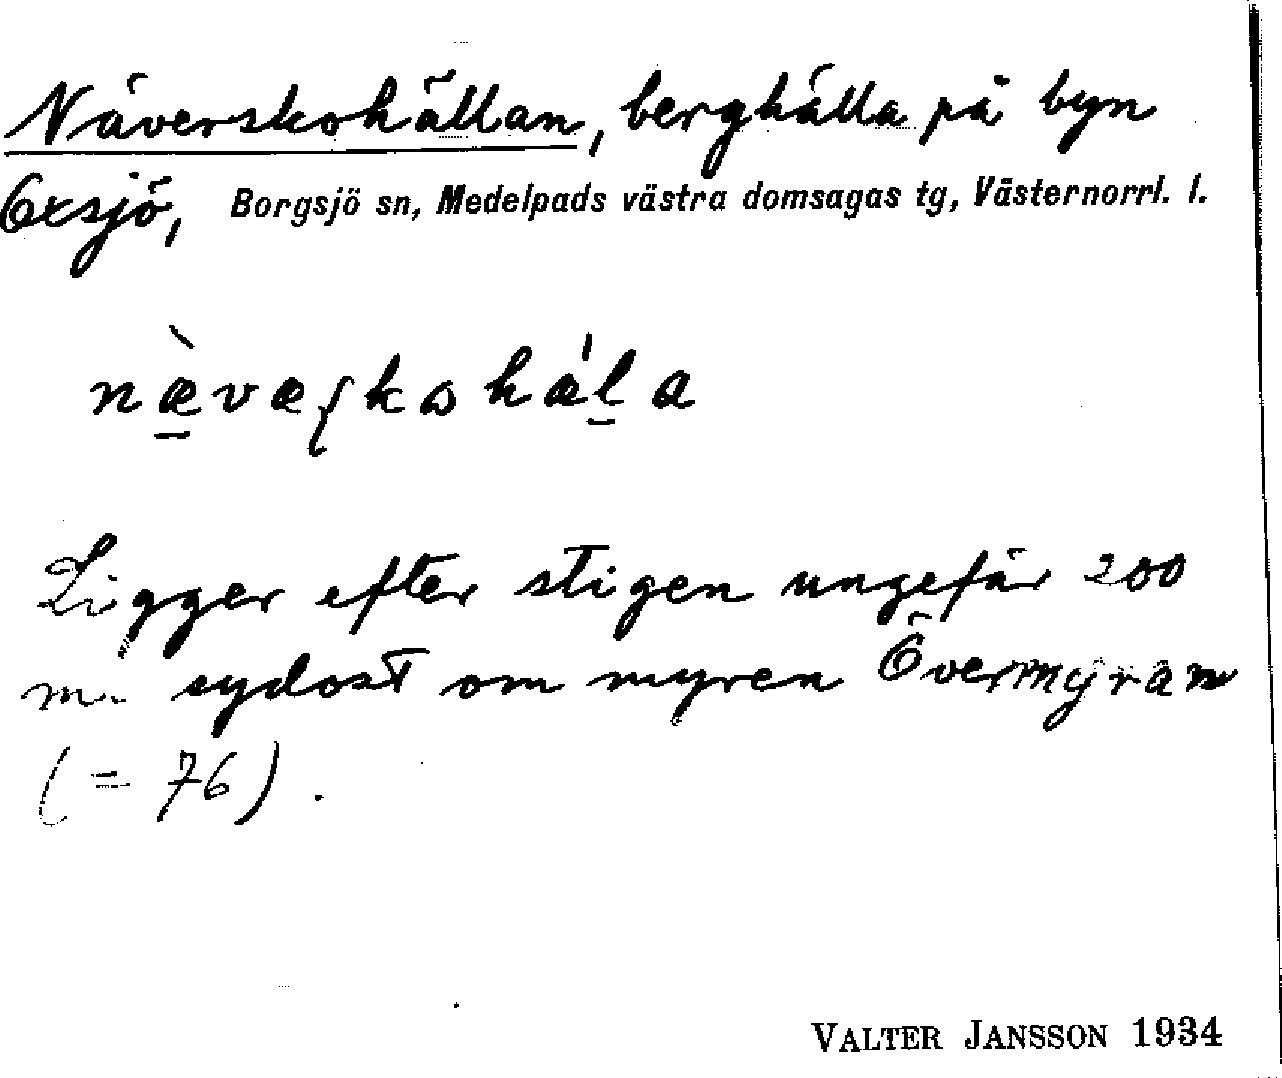 Näverskohällan, berghälla på byn
Oxsjö, Borgsjö sn, Medelpads västra domsagas tg, Västernorrl. l.
næ̀væʃkɷhǽl̠a
Ligger efter stigen ungefär 200
m. sydost om myren Övermyran
(= 76).
VALTER JANSSON 1934